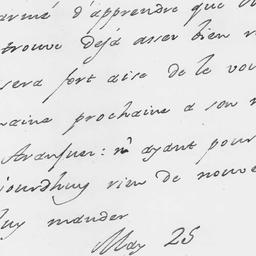 armé d'apprendre que
trouve déja assez bien r
sera fort aise de le vou
maine prochaine a son r
Aranjuez: n' ayant pour
jourdhuy rien de nouve
luy mander
May 25